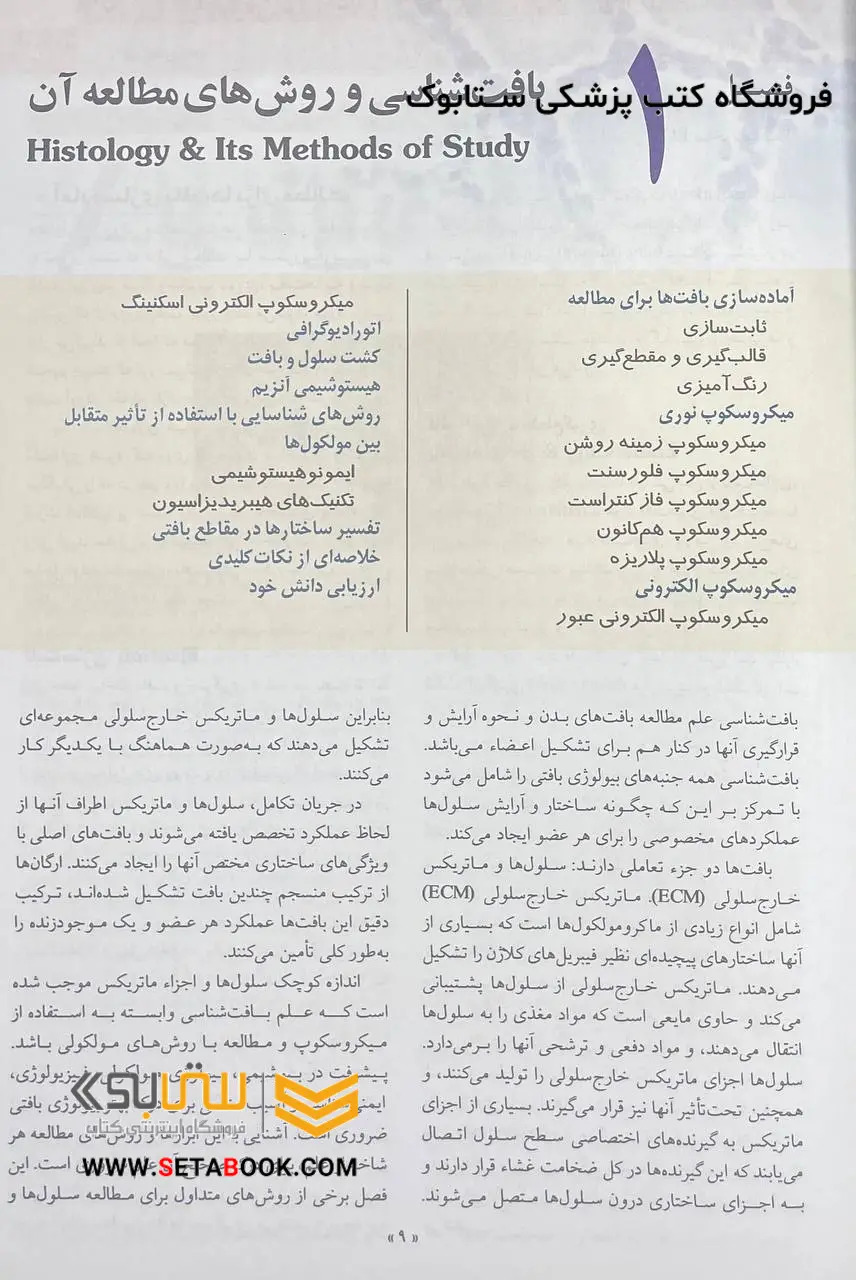 فروشگاه کتب پزشکی ستابوک
۱
بافت‌شناسی و روش‌های مطالعه آن
Histology & Its Methods of Study
آماده‌سازی بافت‌ها برای مطالعه
ثابت‌سازی
قالب‌گیری و مقطع‌گیری
رنگ‌آمیزی
میکروسکوپ نوری
میکروسکوپ زمینه روشن
میکروسکوپ فلورسنت
میکروسکوپ فاز کنتراست
میکروسکوپ هم‌کانون
میکروسکوپ پلاریزه
میکروسکوپ الکترونی
میکروسکوپ الکترونی عبور
میکروسکوپ الکترونی اسکنینگ
اتورادیوگرافی
کشت سلول و بافت
هیستوشیمی آنزیم
روش‌های شناسایی با استفاده از تأثیر متقابل
بین مولکول‌ها
ایمونوهیستوشیمی
تکنیک‌های هیبریدیزاسیون
تفسیر ساختارها در مقاطع بافتی
خلاصه‌ای از نکات کلیدی
ارزیابی دانش خود
بافت‌شناسی علم مطالعه بافت‌های بدن و نحوه آرایش و
قرارگیری آنها در کنار هم برای تشکیل اعضاء می‌باشد.
بافت‌شناسی همه جنبه‌های بیولوژی بافتی را شامل می‌شود
با تمرکز بر این که چگونه ساختار و آرایش سلول‌ها
عملکردهای مخصوصی را برای هر عضو ایجاد می‌کند.
بافت‌ها دو جزء تعاملی دارند: سلول‌ها و ماتریکس
خارج‌سلولی (ECM). ماتریکس خارج‌سلولی (ECM)
شامل انواع زیادی از ماکرومولکول‌ها است که بسیاری از
آنها ساختارهای پیچیده‌ای نظیر فیبریل‌های کلاژن را تشکیل
می‌دهند. ماتریکس خارج‌سلولی از سلول‌ها پشتیبانی
می‌کند و حاوی مایعی است که مواد مغذی را به سلول‌ها
انتقال می‌دهند، و مواد دفعی و ترشحی آنها را برمی‌دارد.
سلول‌ها اجزای ماتریکس خارج‌سلولی را تولید می‌کنند، و
همچنین تحت‌تأثیر آنها نیز قرار می‌گیرند. بسیاری از اجزای
ماتریکس به گیرنده‌های اختصاصی سطح سلول اتصال
می‌یابند که این گیرنده‌ها در کل ضخامت غشاء قرار دارند و
به اجزای ساختاری درون سلول‌ها متصل می‌شوند.
بنابراین سلول‌ها و ماتریکس خارج‌سلولی مجموعه‌ای
تشکیل می‌دهند که به‌صورت هماهنگ با یکدیگر کار
می‌کنند.
در جریان تکامل، سلول‌ها و ماتریکس اطراف آنها از
لحاظ عملکرد تخصص یافته می‌شوند و بافت‌های اصلی با
ویژگی‌های ساختاری مختص آنها را ایجاد می‌کنند. ارگان‌ها
از ترکیب منسجم چندین بافت تشکیل شده‌اند، ترکیب
دقیق این بافت‌ها عملکرد هر عضو و یک موجودزنده را
به‌طور کلی تأمین می‌کنند.
اندازه کوچک سلول‌ها و اجزاء ماتریکس موجب شده
است که علم بافت‌شناسی وابسته به استفاده از
میکروسکوپ و مطالعه با روش‌های مولکولی باشد.
پیشرفت در فیزیولوژی،
بیولوژی بافتی
ضروری است. آشنایی با این ابزارها و روش‌های مطالعه هر
است. این
فصل برخی از روش‌های متداول برای مطالعه سلول‌ها و
ستابوک
فروشگاه اینترنتی کتاب
WWW.SETABOOK.COM
« ۹ »